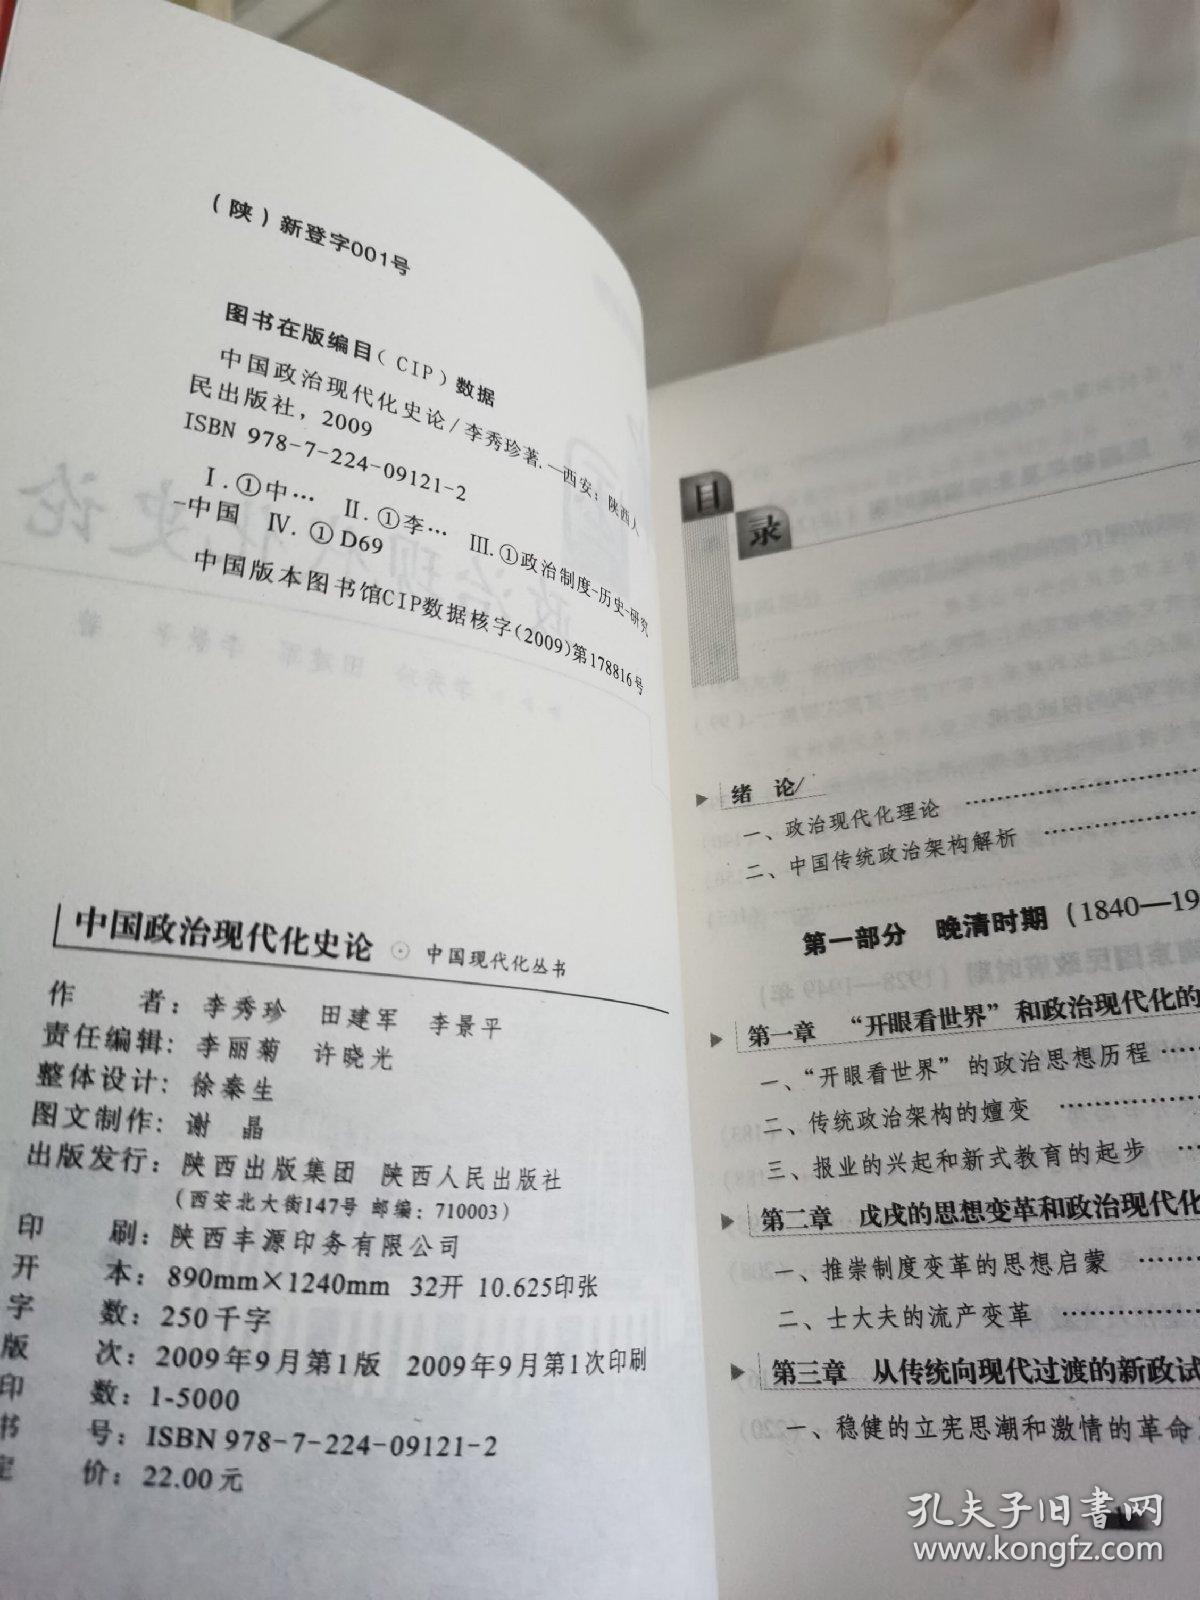 (陕)新登字001号
图书在版编目(CIP)数据
中国政治现代化史论/李秀珍著.—西安:陕西人
民出版社,2009
ISBN 978-7-224-09121-2
Ⅰ.①中… Ⅱ.①李… Ⅲ.①政治制度-历史-研究
-中国 Ⅳ.①D69
中国版本图书馆CIP数据核字(2009)第178816号
中国政治现代化史论 中国现代化丛书
作 者:李秀珍 田建军 李景平
责任编辑:李丽菊 许晓光
整体设计:徐秦生
图文制作:谢 晶
出版发行:陕西出版集团 陕西人民出版社
(西安北大街147号 邮编:710003)
印 刷:陕西丰源印务有限公司
开 本:890mm×1240mm 32开 10.625印张
字 数:250千字
版 次:2009年9月第1版 2009年9月第1次印刷
印 数:1-5000
书 号:ISBN 978-7-224-09121-2
定 价:22.00元
目录
绪 论/
一、政治现代化理论 ……………
二、中国传统政治架构解析 ……………
第一部分 晚清时期(1840—19
第一章 “开眼看世界”和政治现代化的
一、“开眼看世界”的政治思想历程……
二、传统政治架构的嬗变 ……………
三、报业的兴起和新式教育的起步 ……
第二章 戊戌的思想变革和政治现代化
一、推崇制度变革的思想启蒙 ………
二、士大夫的流产变革 ……………
第三章 从传统向现代过渡的新政试
一、稳健的立宪思潮和激情的革命
孔夫子旧书网
www.kongfz.com